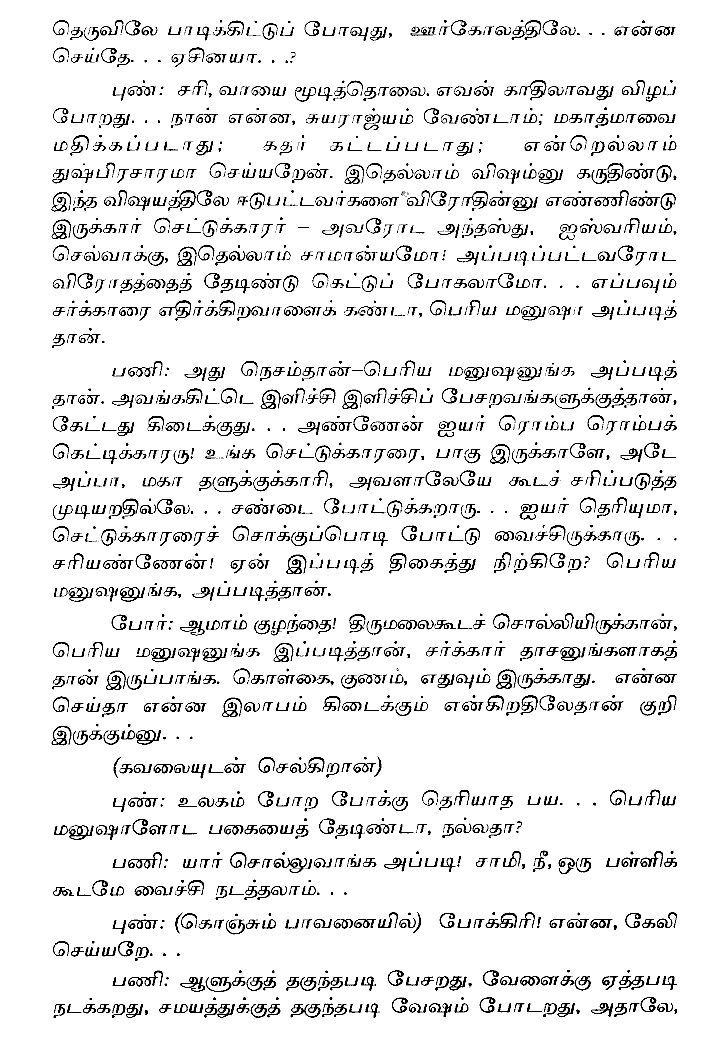 தெருவிலே பாடிக்கிட்டுப் போவுது, ஊர்கோலத்திலே. . . என்ன
செய்தே. . . ஏசினயா. . .?
புண்: சரி, வாயை மூடித்தொலை. எவன் காதிலாவது விழப்
போறது. . . நான் என்ன, சுயராஜ்யம் வேண்டாம்; மகாத்மாவை
மதிக்கப்படாது; கதர் கட்டப்படாது; என்றெல்லாம்
துஷ்பிரசாரமா செய்யறேன். இதெல்லாம் விஷம்னு கருதிண்டு,
இந்த விஷயத்திலே ஈடுபட்டவர்களை விரோதின்னு எண்ணிண்டு
இருக்கார் செட்டுக்காரர் – அவரோட அந்தஸ்து, ஐஸ்வரியம்,
செல்வாக்கு, இதெல்லாம் சாமான்யமோ! அப்படிப்பட்டவரோட
விரோதத்தைத் தேடிண்டு கெட்டுப் போகலாமோ. . . எப்பவும்
சர்க்காரை எதிர்க்கிறவாளைக் கண்டா, பெரிய மனுஷா அப்படித்
தான்.
பணி: அது நெசம்தான்–பெரிய மனுஷனுங்க அப்படித்
தான். அவங்ககிட்டெ இளிச்சி இளிச்சிப் பேசறவங்களுக்குத்தான்,
கேட்டது கிடைக்குது. . . அண்ணேன் ஐயர் ரொம்ப ரொம்பக்
கெட்டிக்காரரு! உங்க செட்டுக்காரரை, பாகு இருக்காளே, அடே
அப்பா, மகா தளுக்குக்காரி, அவளாலேயே கூடச் சரிப்படுத்த
முடியறதில்லே. . . சண்டை போட்டுக்கறாரு. . . ஐயர் தெரியுமா,
செட்டுக்காரரைச் சொக்குப்பொடி போட்டு வைச்சிருக்காரு. . .
சரியண்ணேன்! ஏன் இப்படித் திகைத்து நிற்கிறே? பெரிய
மனுஷனுங்க, அப்படித்தான்.
போர்: ஆமாம் குழந்தை! திருமலைகூடச் சொல்லியிருக்கான்,
பெரிய மனுஷனுங்க இப்படித்தான், சர்க்கார் தாசனுங்களாகத்
தான் இருப்பாங்க. கொள்கை, குணம், எதுவும் இருக்காது. என்ன
செய்தா என்ன இலாபம் கிடைக்கும் என்கிறதிலேதான் குறி
இருக்கும்னு. . .
(கவலையுடன் செல்கிறான்)
புண்: உலகம் போற போக்கு தெரியாத பய. . . பெரிய
மனுஷாளோட பகையைத் தேடிண்டா, நல்லதா?
பணி: யார் சொல்லுவாங்க அப்படி! சாமி, நீ, ஒரு பள்ளிக்
கூடமே வைச்சி நடத்தலாம். . .
புண்: (கொஞ்சும் பாவனையில்) போக்கிரி! என்ன, கேலி
செய்யறே. . .
பணி: ஆளுக்குத் தகுந்தபடி பேசறது, வேளைக்கு ஏத்தபடி
நடக்கறது, சமயத்துக்குத் தகுந்தபடி வேஷம் போடறது, அதாலே,